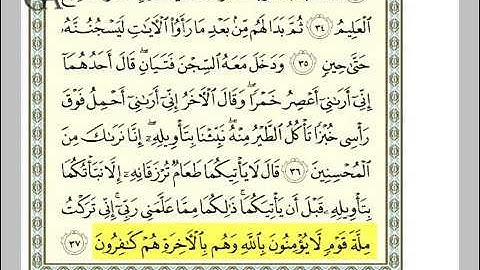 ٱلْعَلِيمُ ٣٤ ثُمَّ بَدَا لَهُم مِّنۢ بَعْدِ مَا رَأَوُا۟ ٱلْـَٔايَٰتِ لَيَسْجُنُنَّهُۥ
حَتَّىٰ حِينٍ ٣٥ وَدَخَلَ مَعَهُ ٱلسِّجْنَ فَتَيَانِ ۖ قَالَ أَحَدُهُمَآ
إِنِّىٓ أَرَىٰنِىٓ أَعْصِرُ خَمْرًا ۖ وَقَالَ ٱلْـَٔاخَرُ إِنِّىٓ أَرَىٰنِىٓ أَحْمِلُ فَوْقَ
رَأْسِى خُبْزًا تَأْكُلُ ٱلطَّيْرُ مِنْهُ ۖ نَبِّئْنَا بِتَأْوِيلِهِۦٓ ۖ إِنَّا نَرَىٰكَ مِنَ
ٱلْمُحْسِنِينَ ٣٦ قَالَ لَا يَأْتِيكُمَا طَعَامٌ تُرْزَقَانِهِۦٓ إِلَّا نَبَّأْتُكُمَا
بِتَأْوِيلِهِۦ قَبْلَ أَن يَأْتِيَكُمَا ۚ ذَٰلِكُمَا مِمَّا عَلَّمَنِى رَبِّىٓ ۚ إِنِّى تَرَكْتُ
مِلَّةَ قَوْمٍ لَّا يُؤْمِنُونَ بِٱللَّهِ وَهُم بِٱلْـَٔاخِرَةِ هُمْ كَٰفِرُونَ ٣٧